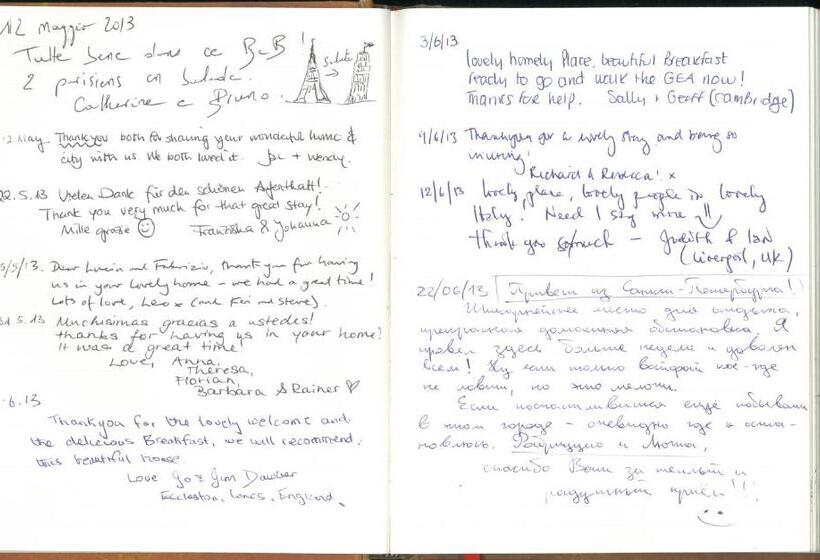 Maggio 2013
Tutto bene dans ce B&B!
2 parisiens en balade.
Catherine e Bruno.
Salute
2 May. Thank you both for sharing your wonderful home &
city with us. We both loved it. Joe + Wendy.
22.5.13 Vielen Dank für den schönen Aufenthalt!
Thank you very much for that great stay!
Mille grazie Franziska & Johanna
/5/13. Dear Lucia and Fabrizio, thank you for having
us in your lovely home - we had a great time!
Lots of love, x (and Kei and Steve).
31.5.13 Muchisimas gracias a ustedes!
thanks for having us in your home!
It was a great time!
Love, Anna,
Theresa,
Florian,
Barbara & Rainer
.6.13
Thankyou for the lovely welcome and
the delicious Breakfast, we will recommend
this beautiful house.
Love Jo & Jim Dawber
Eccleston, Lancs, England.
3/6/13
Lovely homely Place, beautiful Breakfast
ready to go and walk the GEA now!
Thanks for help. Sally + Geoff (Cambridge)
9/6/13 Thankyou for a lovely stay and being so
inviting!
Richard & Rebecca! x
12/6/13 Lovely place, lovely people in lovely
Italy! Need I say more
Thank you so much - Judith & Ian
(Liverpool, UK)
22/06/13 Привет из Санкт-Петербурга!
Шикарнейшее место для отдыха,
прекрасная домашняя обстановка. Я
провел здесь больше недели и доволен
всем! Ну если только вайфай кое-где
не ловит, но это мелочи.
Если посчастливится ещё побывать
в этом городе - очевидно где я оста-
новлюсь. Фабриццио и
спасибо Вам за теплый и
радушный приём!!!